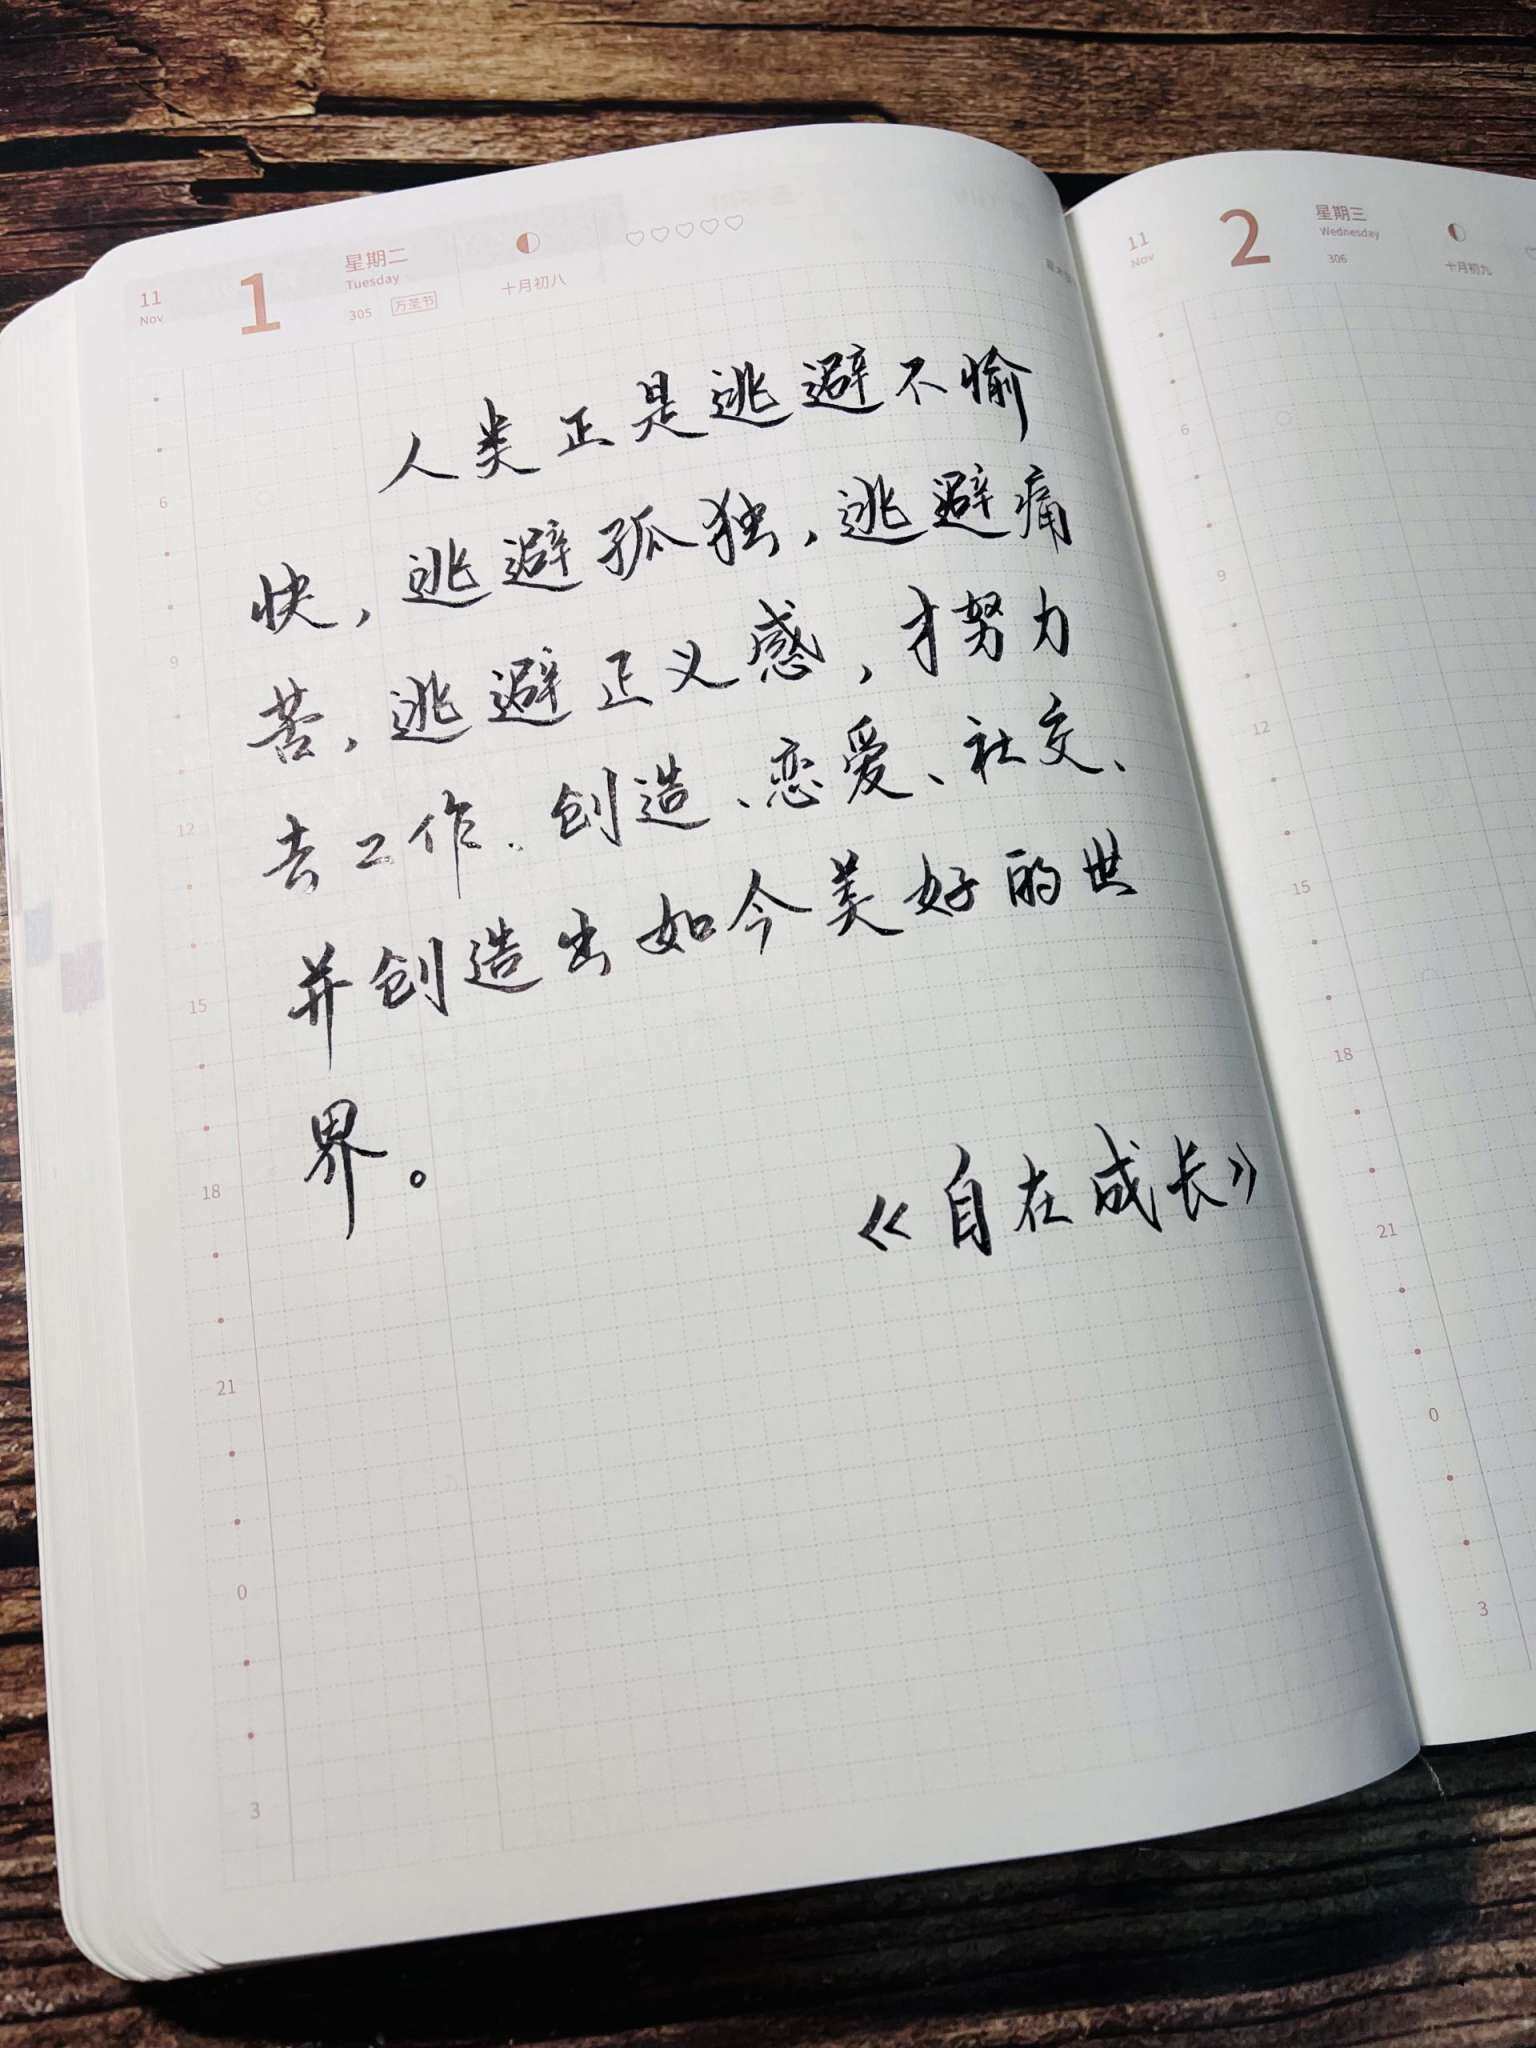 11
Nov
1
星期二
Tuesday
305 万圣节
十月初八
人类正是逃避不愉
快，逃避孤独，逃避痛
苦，逃避正义感，才努力
去工作、创造、恋爱、社交、
并创造出如今美好的世
界。
《自在成长》
6
9
12
15
18
21
0
3
11
Nov
2
星期三
Wednesday
306
十月初九
6
9
12
15
18
21
0
3